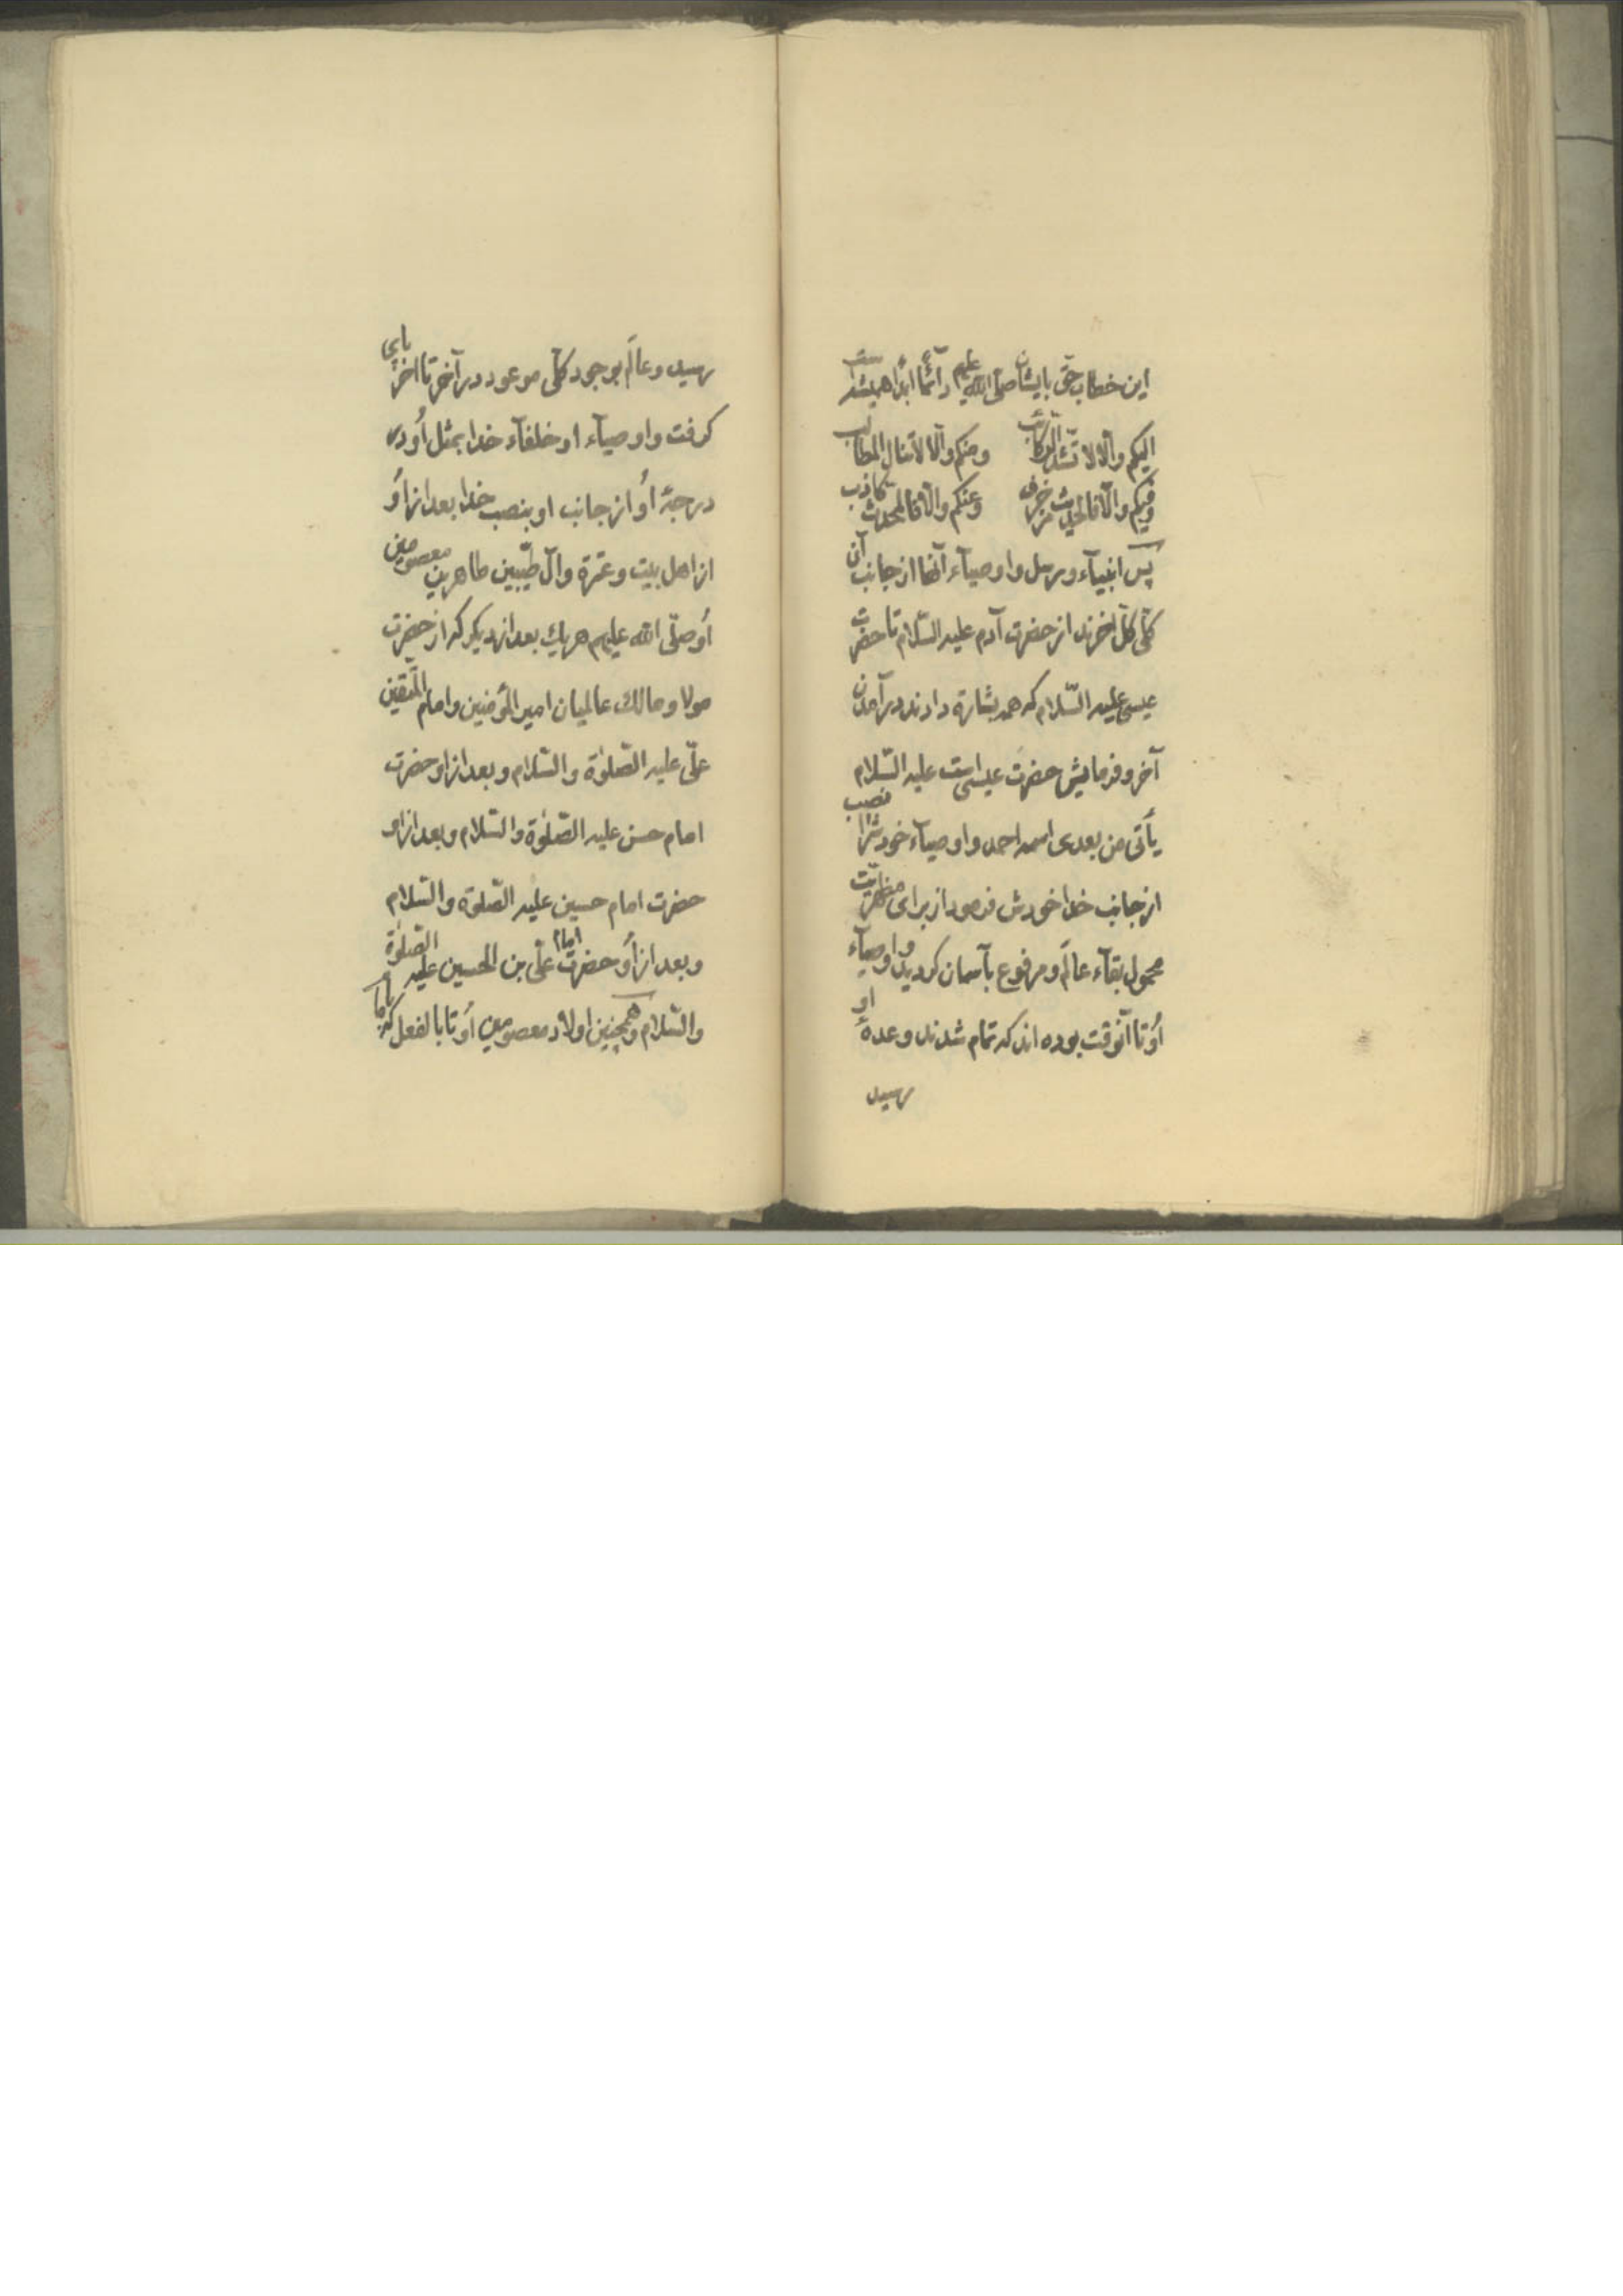 این خطاب حق بایشان صلی الله علیهم دائمًا ابدًا همیشه است
الیکم والّا لا تشدّ الرکائب ومنکم والّا لا تنال المطالب
وفیکم والّا فالحدیث مزخرف وعنکم والّا فالمحدث کاذب
پس انبیآء ورسل واوصیآء آنها از جانب آن
کلّی کلّ آخرند از حضرت آدم علیه السّلام تا حضرت
عیسی علیه السّلام که همه بشارة دادند در آمدن
آخر وفرمایش حضرت عیسی است علیه السّلام
یأتی من بعدی اسمه احمد واوصیآء خودشرا نصب
از جانب خدا خودش فرمود از برای مظهریّت
محمول بقآء عالَم ومرفوع بآسمان کردید واوصیآء
اُو تا آنوقت بوده اند که تمام شدند وعدهٔ او
رسید
رسید وعالَم بوجود کلّی موعود در آخر تا آخر پای
کرفت واوصیآء او خلفآء خدا بمثل اُو در
درجهٔ اُو از جانب او بنصب خدا بعد از اُو
از اهل بیت وعترة وآل طیّبین طاهرین معصومین
اُو صلّی الله علیهم هریك بعد از دیکر که از حضرت
مولا ومالك عالمیان امیر المؤمنین وامام المتّقین
علیّ علیه الصّلوٰة والسّلام وبعد از او حضرت
امام حسن علیه الصّلوٰة والسّلام وبعد از او
حضرت امام حسین علیه الصّلوة والسّلام
وبعد از اُو حضرت امام علیّ بن الحسین علیه الصّلوٰة
والسّلام وهمچنین اولاد معصومین اُو تا بالفعل که